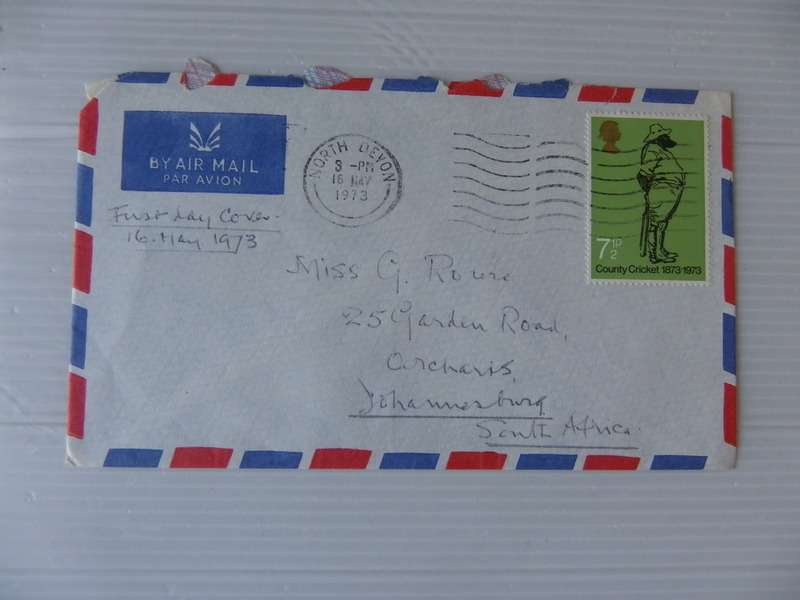 BY AIR MAIL
PAR AVION
First day Cover.
16. May 1973
NORTH DEVON
3 -PM
16 MAY
1973
7½P
County Cricket 1873-1973
Miss G.
25 Garden Road,
Orchards,
Johannesburg
South Africa.